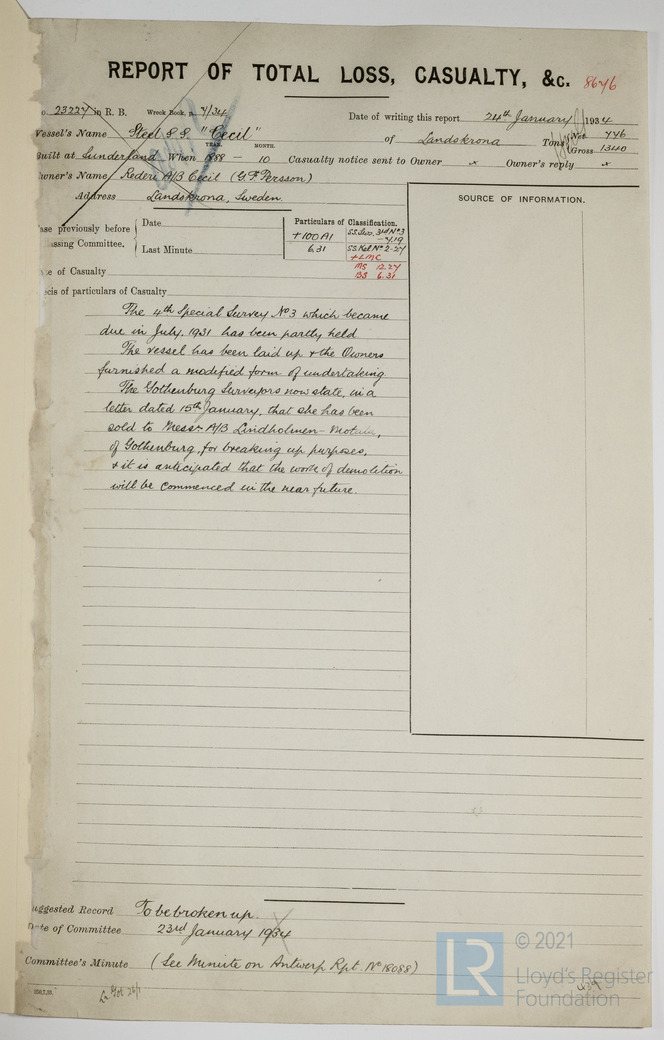 REPORT OF TOTAL LOSS, CASUALTY, &c. 8646
o. 23227 in R. B. Wreck Book, p. 4/34
Date of writing this report 24th January 1934
Vessel's Name Steel S.S. "Cecil"
of Landskrona Tons Net 776
Gross 1340
YEAR. MONTH.
uilt at Sunderland When 1888 — 10 Casualty notice sent to Owner x Owner's reply x
wner's Name Rederi A/B Cecil (G. F. Persson)
Address Landskrona, Sweden.
SOURCE OF INFORMATION.
ase previously before
assing Committee.
Date
Last Minute
Particulars of Classification.
+100A1
6.31
SS. Sun. 3rd No 3
— 7.19
SS. Kel No 2-27
+LMC
MS 12.27
BS 6.31
e of Casualty
ecis of particulars of Casualty
The 4th Special Survey No 3 which became
due in July, 1931 has been partly held
The vessel has been laid up & the Owners
furnished a modified form of undertaking
The Gothenburg Surveyors now state, in a
letter dated 15th January, that she has been
sold to Messrs A/B Lindholmen-Motala,
of Gothenburg, for breaking up purposes,
& it is anticipated that the work of demolition
will be commenced in the near future.
uggested Record To be broken up.
te of Committee 23rd January 1934
Committee's Minute (See Minute on Antwerp Rpt. No 18088)
© 2021
LR
Lloyd's Register
Foundation
439